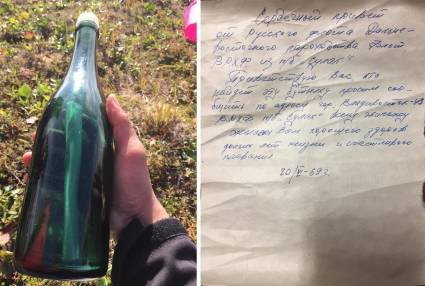 Сердечный привет
от русского флота Дальне-
восточного пароходства флот
ВРХФ из п/б „Сулак“
Приветствую Вас кто
найдет эту бутылку просим сооб-
щить по адресу гор. Владивосток-43
ВРХФ п/б „Сулак“ всему экипажу
желаем Вам хорошего здоровья
долгих лет жизни и счастливого
плавания
20/VI-69г